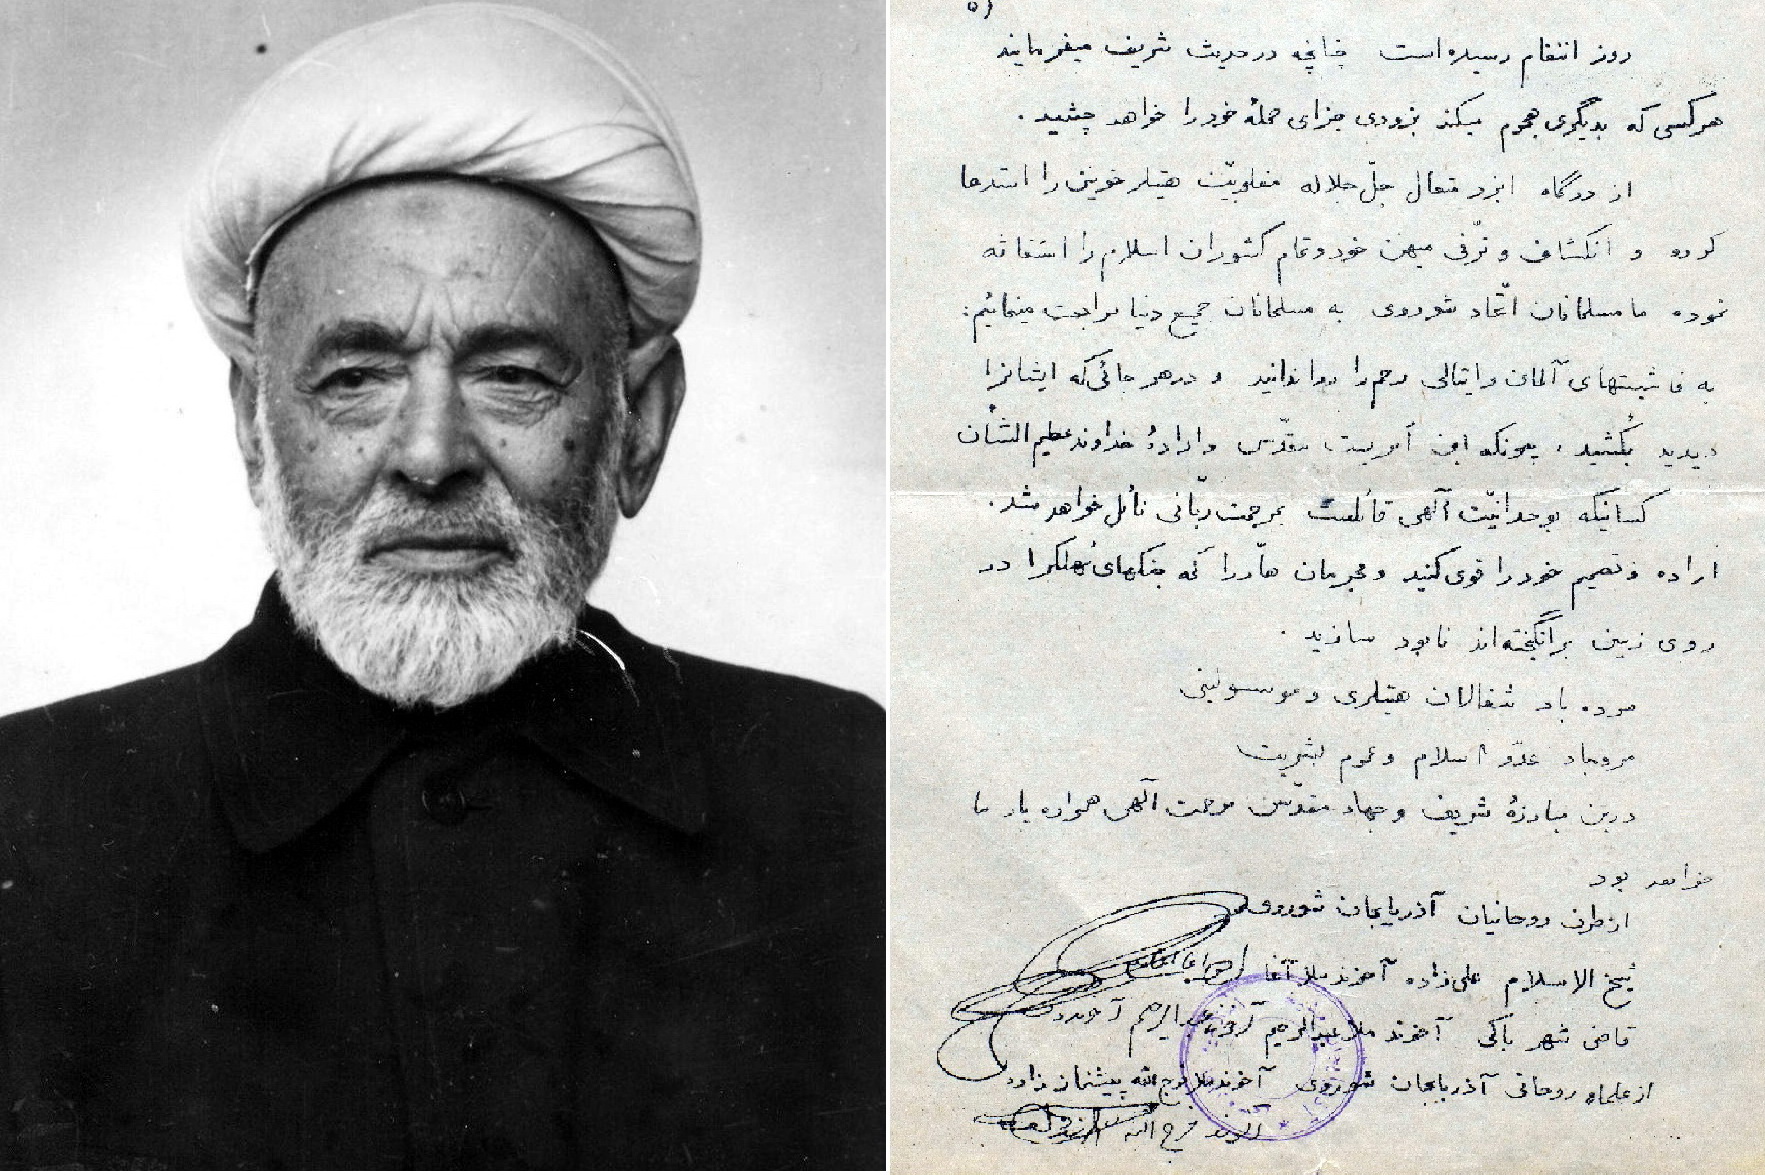 روز انتقام رسیده است چنانچه در حدیث شریف میفرمایند
هر کسی که بدیگری هجوم میکند بزودی جزای حملهٔ خود را خواهد چشید.
از درگاه ایزد متعال جلّ جلاله مغلوبیّت هیتلر خونین را استدعا
کرده و انکشاف و ترّقی میهن خود و تمام کشوران اسلام را استغاثه
نموده ما مسلمانان اتّحاد شوروی به مسلمانان جمیع دنیا مراجعت مینمائیم:
به فاشیستهای آلمان و ایتالی رحم را روا ندانید و در هر جائی که ایشانرا
دیدید بُکشید، چونکه این امریست مقدّس و ارادهٔ خداوند عظیم الشأن
کسانیکه بوحدانیّت آلهی قائلست بمرحمت ربّانی نائل خواهد شد.
اراده و تصمیم خود را قوی کنید و مجرمان را که جنگهای مُهلکرا در
روی زمین برانگیخته‌اند نابود سازید.
مرده باد شغالان هیتلری و موسولینی
مرده‌باد عدّو اسلام و عموم بشریت
درین مبارزهٔ شریف و جهاد مقدّس مرحمت آلهی همواره یار ما
خواهد بود
از طرف روحانیان آذربایجان شوروی
شیخ الاسلام علی‌زاده آخوند ملا آقا
قاضی شهر باکی آخوند ملا عبدالرحیم عبدالرحیم آخوند
از علماء روحانی آذربایجان شوروی آخوند ملا فرج الله پیشنماز زاده
آخوند فرج الله